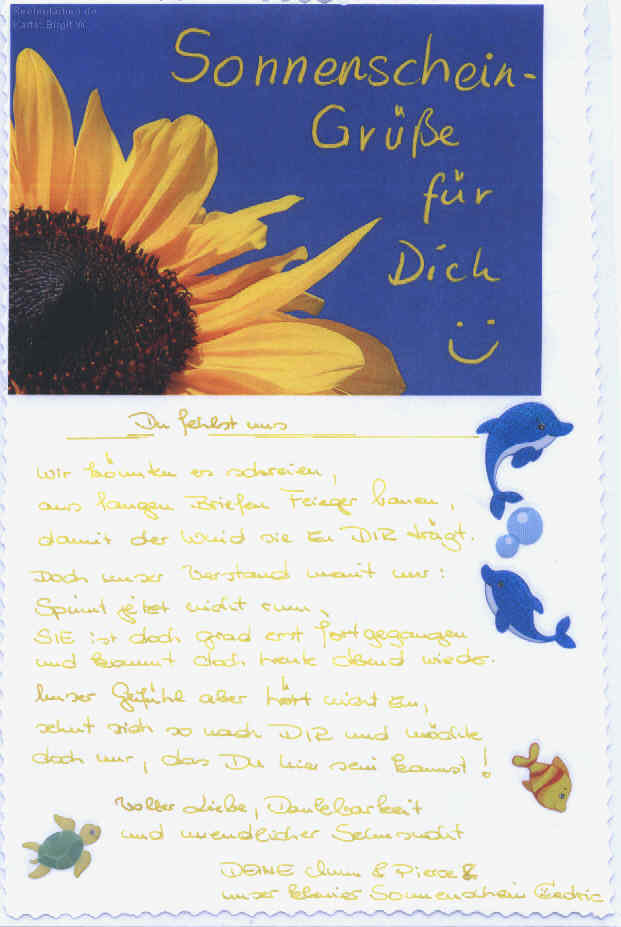 Seelenfarben.de
Karte: Birgit W.
Sonnenschein-
Grüße
für
Dich
Du fehlst uns
Wir könnten es schreien,
aus langen Briefen Flieger bauen,
damit der Wind sie zu DIR trägt.
Doch unser Verstand meint nur:
Spinnt jetzt nicht rum,
SIE ist doch grad erst fortgegangen
und kommt doch heute Abend wieder.
Unser Gefühl aber hört nicht zu,
sehnt sich so nach DIR und möchte
doch nur, das Du hier sein kannst!
Voller Liebe, Dankbarkeit
und unendlicher Sehnsucht
DEINE &
unser kleiner Sonnenschein Cedric